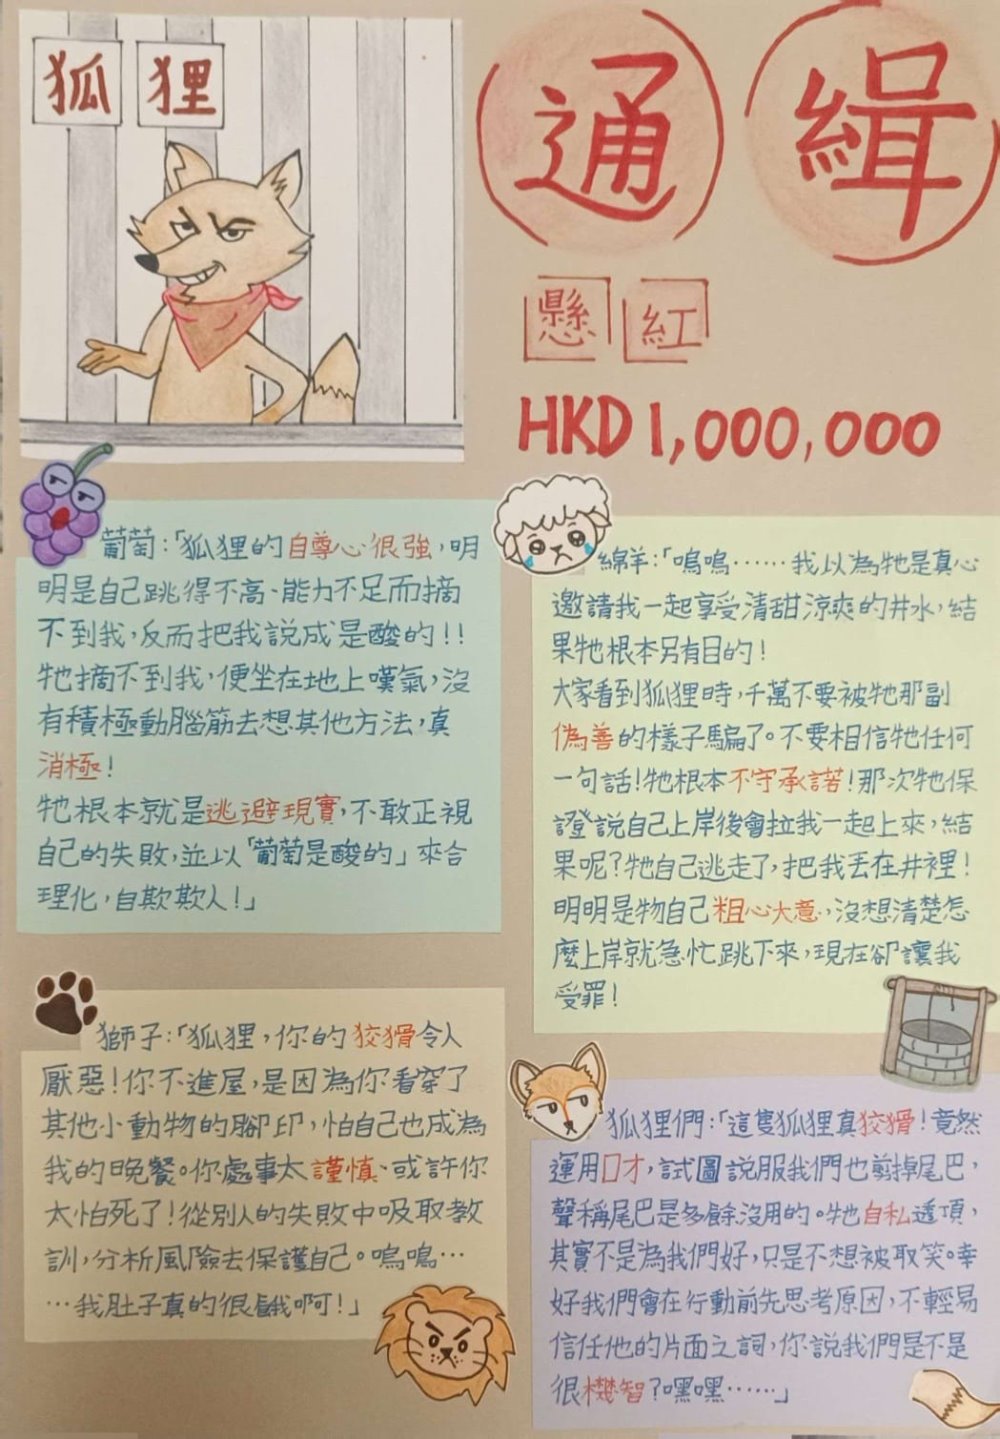 狐狸
通緝
懸紅
HKD 1,000,000
葡萄:「狐狸的自尊心很強,明
明是自己跳得不高、能力不足而摘
不到我,反而把我說成是酸的!!
牠摘不到我,便坐在地上嘆氣,沒
有積極動腦筋去想其他方法,真
消極!
牠根本就是逃避現實,不敢正視
自己的失敗,並以「葡萄是酸的」來合
理化,自欺欺人!」
綿羊:「嗚嗚……我以為牠是真心
邀請我一起享受清甜涼爽的井水,結
果牠根本另有目的!
大家看到狐狸時,千萬不要被牠那副
偽善的樣子騙了。不要相信牠任何
一句話!牠根本不守承諾!那次牠保
證說自己上岸後會拉我一起上來,結
果呢?牠自己逃走了,把我丟在井裡!
明明是牠自己粗心大意,沒想清楚怎
麼上岸就急忙跳下來,現在卻讓我
受罪!
獅子:「狐狸,你的狡猾令人
厭惡!你不進屋,是因為你看穿了
其他小動物的腳印,怕自己也成為
我的晚餐。你處事太謹慎、或許你
太怕死了!從別人的失敗中吸取教
訓,分析風險去保護自己。嗚嗚…
…我肚子真的很餓啊!」
狐狸們:「這隻狐狸真狡猾!竟然
運用口才,試圖說服我們也剪掉尾巴,
聲稱尾巴是多餘沒用的。牠自私透頂,
其實不是為我們好,只是不想被取笑。幸
好我們會在行動前先思考原因,不輕易
信任他的片面之詞,你說我們是不是
很機智?嘿嘿……」